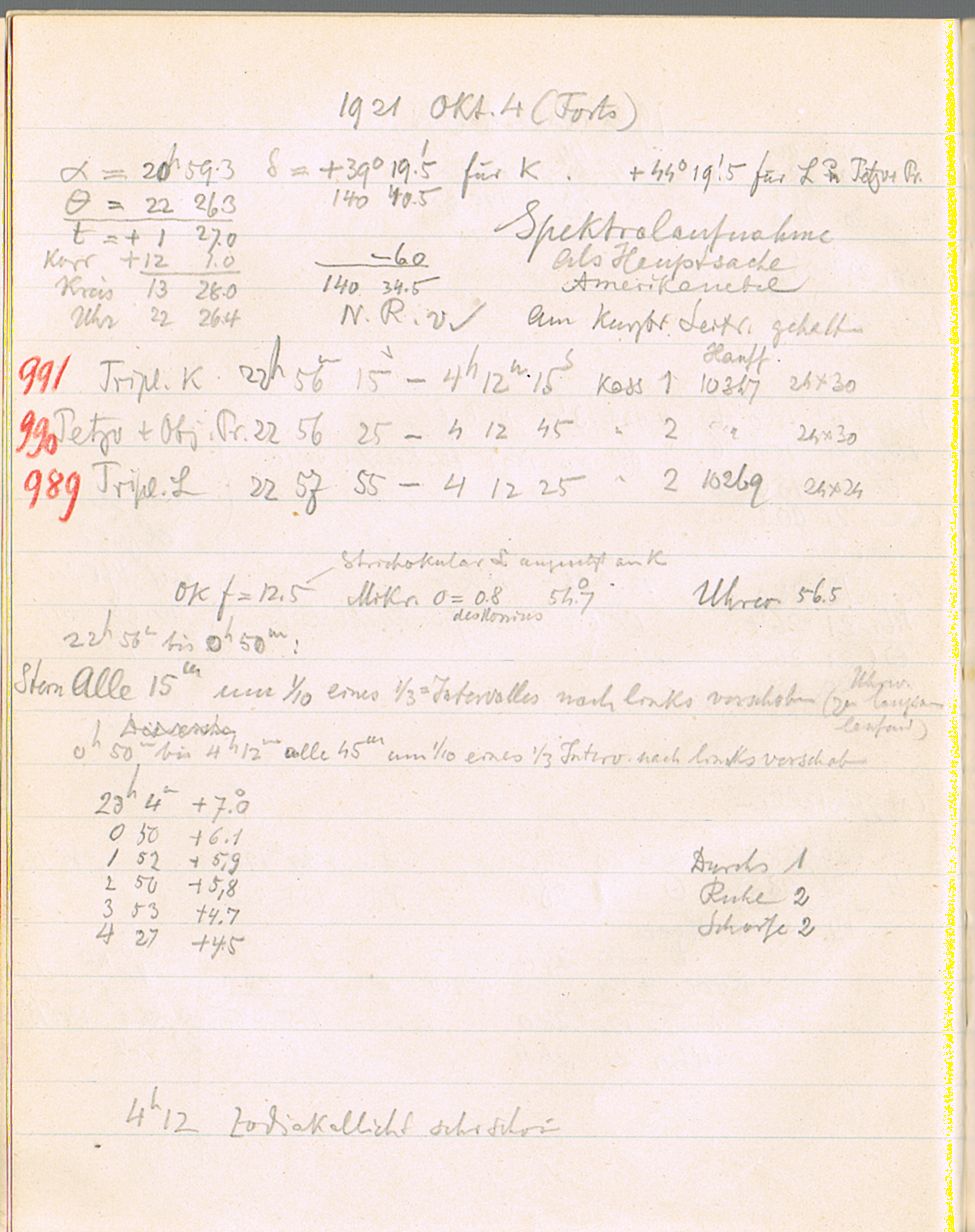 1921 Okt. 4 (Forts)
α = 20ʰ 59.3 δ = +39° 19.'5 für K. +44° 19.'5 für L Petzv. Pr.
θ = 22 26.3 140 40.5
t = + 1 27.0 Spektralaufnahme
Korr +12 1.0 -60 als Hauptsache
Kreis 13 28.0 140 34.5 Amerikanebel
Uhr 22 26.4 N. R. v. ✓ am Leitr. gehalten
Hauff.
991 Tripl. K 22ʰ 56ᵐ 15ˢ – 4ʰ 12ᵐ 15ˢ Kass 1 10347 24×30
990 Petzv + Obj. Pr. 22 56 25 – 4 12 45 " 2 " 24×30
989 Tripl. L 22 57 55 – 4 12 25 " 2 10269 24×24
Strichokular L angesetzt an K
Ok f = 12.5 Mikr. 0 = 0.8 54.°7 Uhrw. 56.5
des Konius
22ʰ 56ᵐ bis 0ʰ 50ᵐ:
Stern Alle 15ᵐ um 1/10 eines 1/3=Intervalles nach links verschoben (Uhrw. zu langsam laufend)
0ʰ 50ᵐ bis 4ʰ 12ᵐ alle 45ᵐ um 1/10 eines 1/3 Interv. nach links verschoben
23ʰ 4ᵐ +7.°0
0 50 +6.1
1 52 +5,9 Durchs 1
2 50 +5,8 Ruhe 2
3 53 +4.7 Schärfe 2
4 27 +4.5
4ʰ 12 Zodiakallicht sehr schön